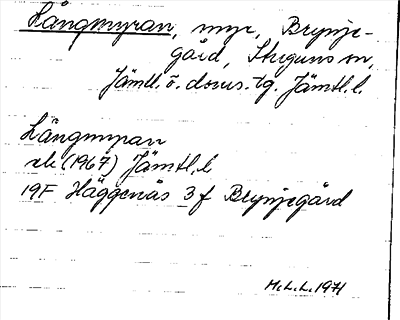 Långmyran, myr, Brynje-
gård, Stuguns sn,
Jämtl. ö. doms. tg. Jämtl. l.
Långmyran
ek (1967) Jämtl, l
19F Häggenås 3 f Brynjegård
M.L.L. 1971